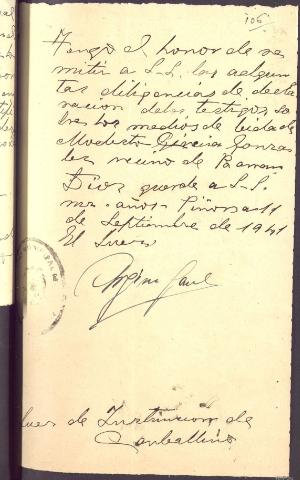 106
Tengo el honor de re
mitir a S.S. las adjun
tas diligencias de decla
racion de los testigos so
bre los medios de vida de
Modesto Garcia Gonza
lez vecino de
Dios guarde a S.S.
ms. años Piñor a 11
de Septiembre de 1941
El Juez
Juez de Instruccion de
Carballino